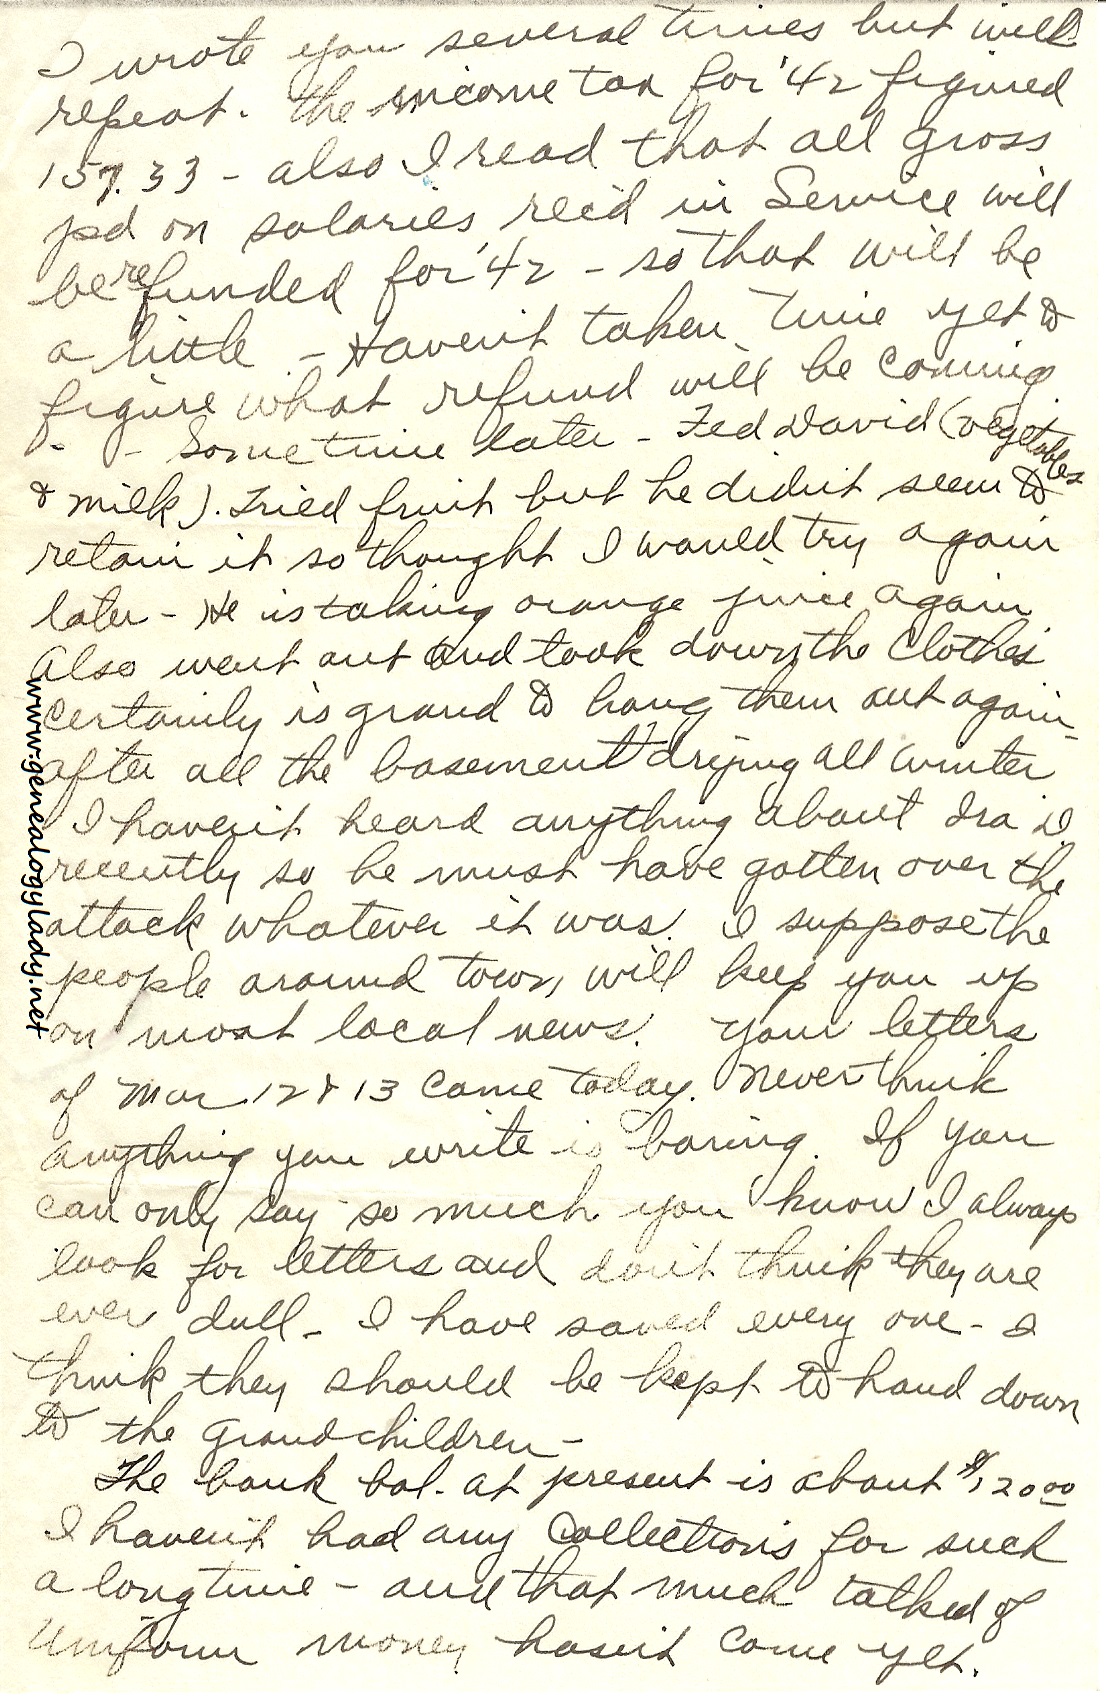 I wrote you several times but will
repeat. The income tax for '42 figured
157.33 - also I read that all gross
pd on salaries rec'd in Service will
be refunded for '42 - so that will be
a little - Haven't taken time yet to
figure what refund will be coming
- - Sometime later - Fed David (vegetables
& milk). Tried fruit but he didn't seem to
retain it so thought I would try again
later - He is taking orange juice again
Also went out and took down the clothes
certainly is grand to hang them out again
after all the basement drying all winter
I haven't heard anything about Ira D
recently so he must have gotten over the
attack whatever it was. I suppose the
people around town will keep you up
on most local news. Your letters
of Mar 12 & 13 came today. Never think
anything you write is boring. If you
can only say so much you know I always
look for letters and don't think they are
ever dull - I have saved every one - I
think they should be kept to hand down
to the grandchildren -
The bank bal. at present is about $120.00
I haven't had any collections for such
a long time - and that much talked of
Uniform money hasn't come yet.
www.genealogylady.net